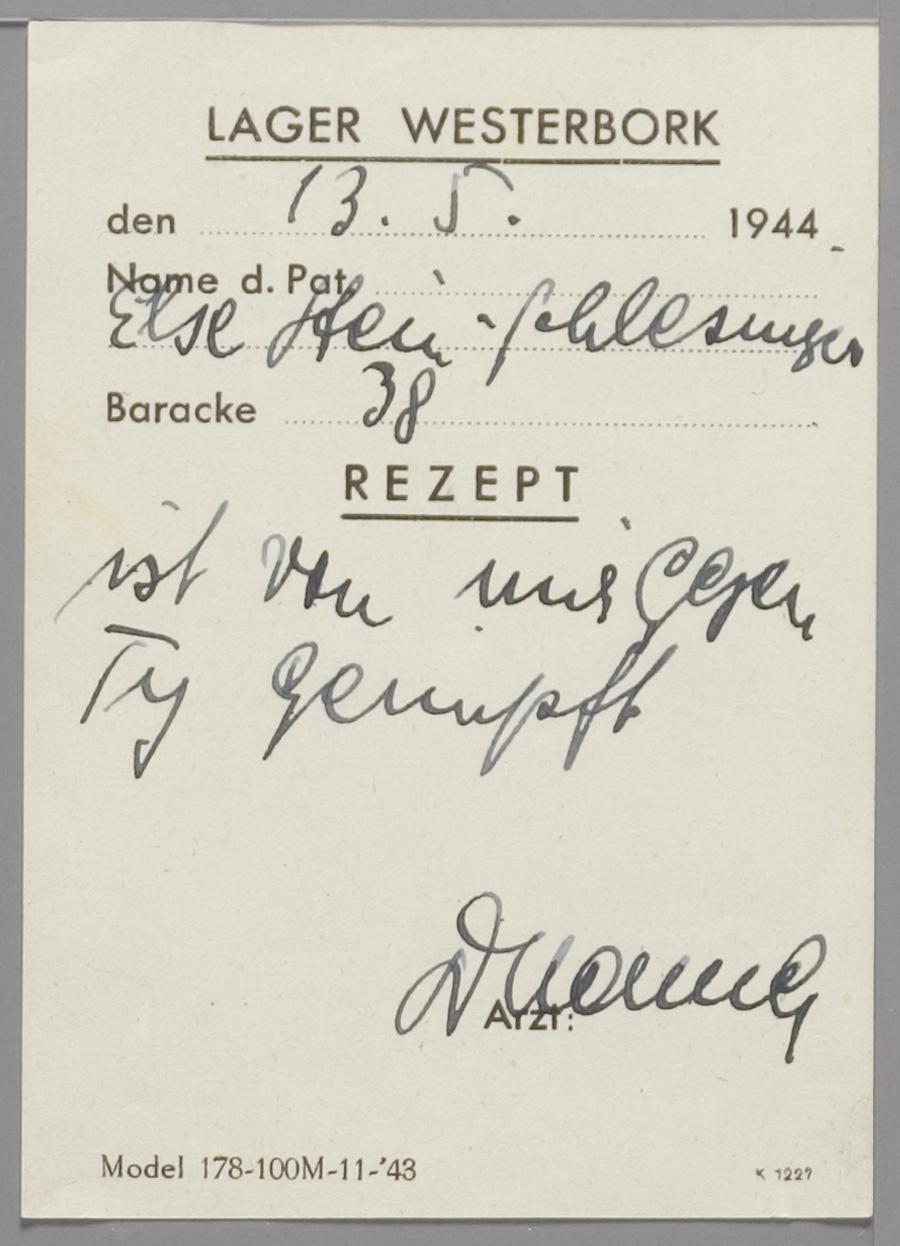 LAGER WESTERBORK
den 13. 5. 1944
Name d. Pat.
Else Stein-Schlesinger
Baracke 38
REZEPT
ist von mir gegen
Ty geimpft
Arzt:
Model 178-100M-11-'43
K 1227